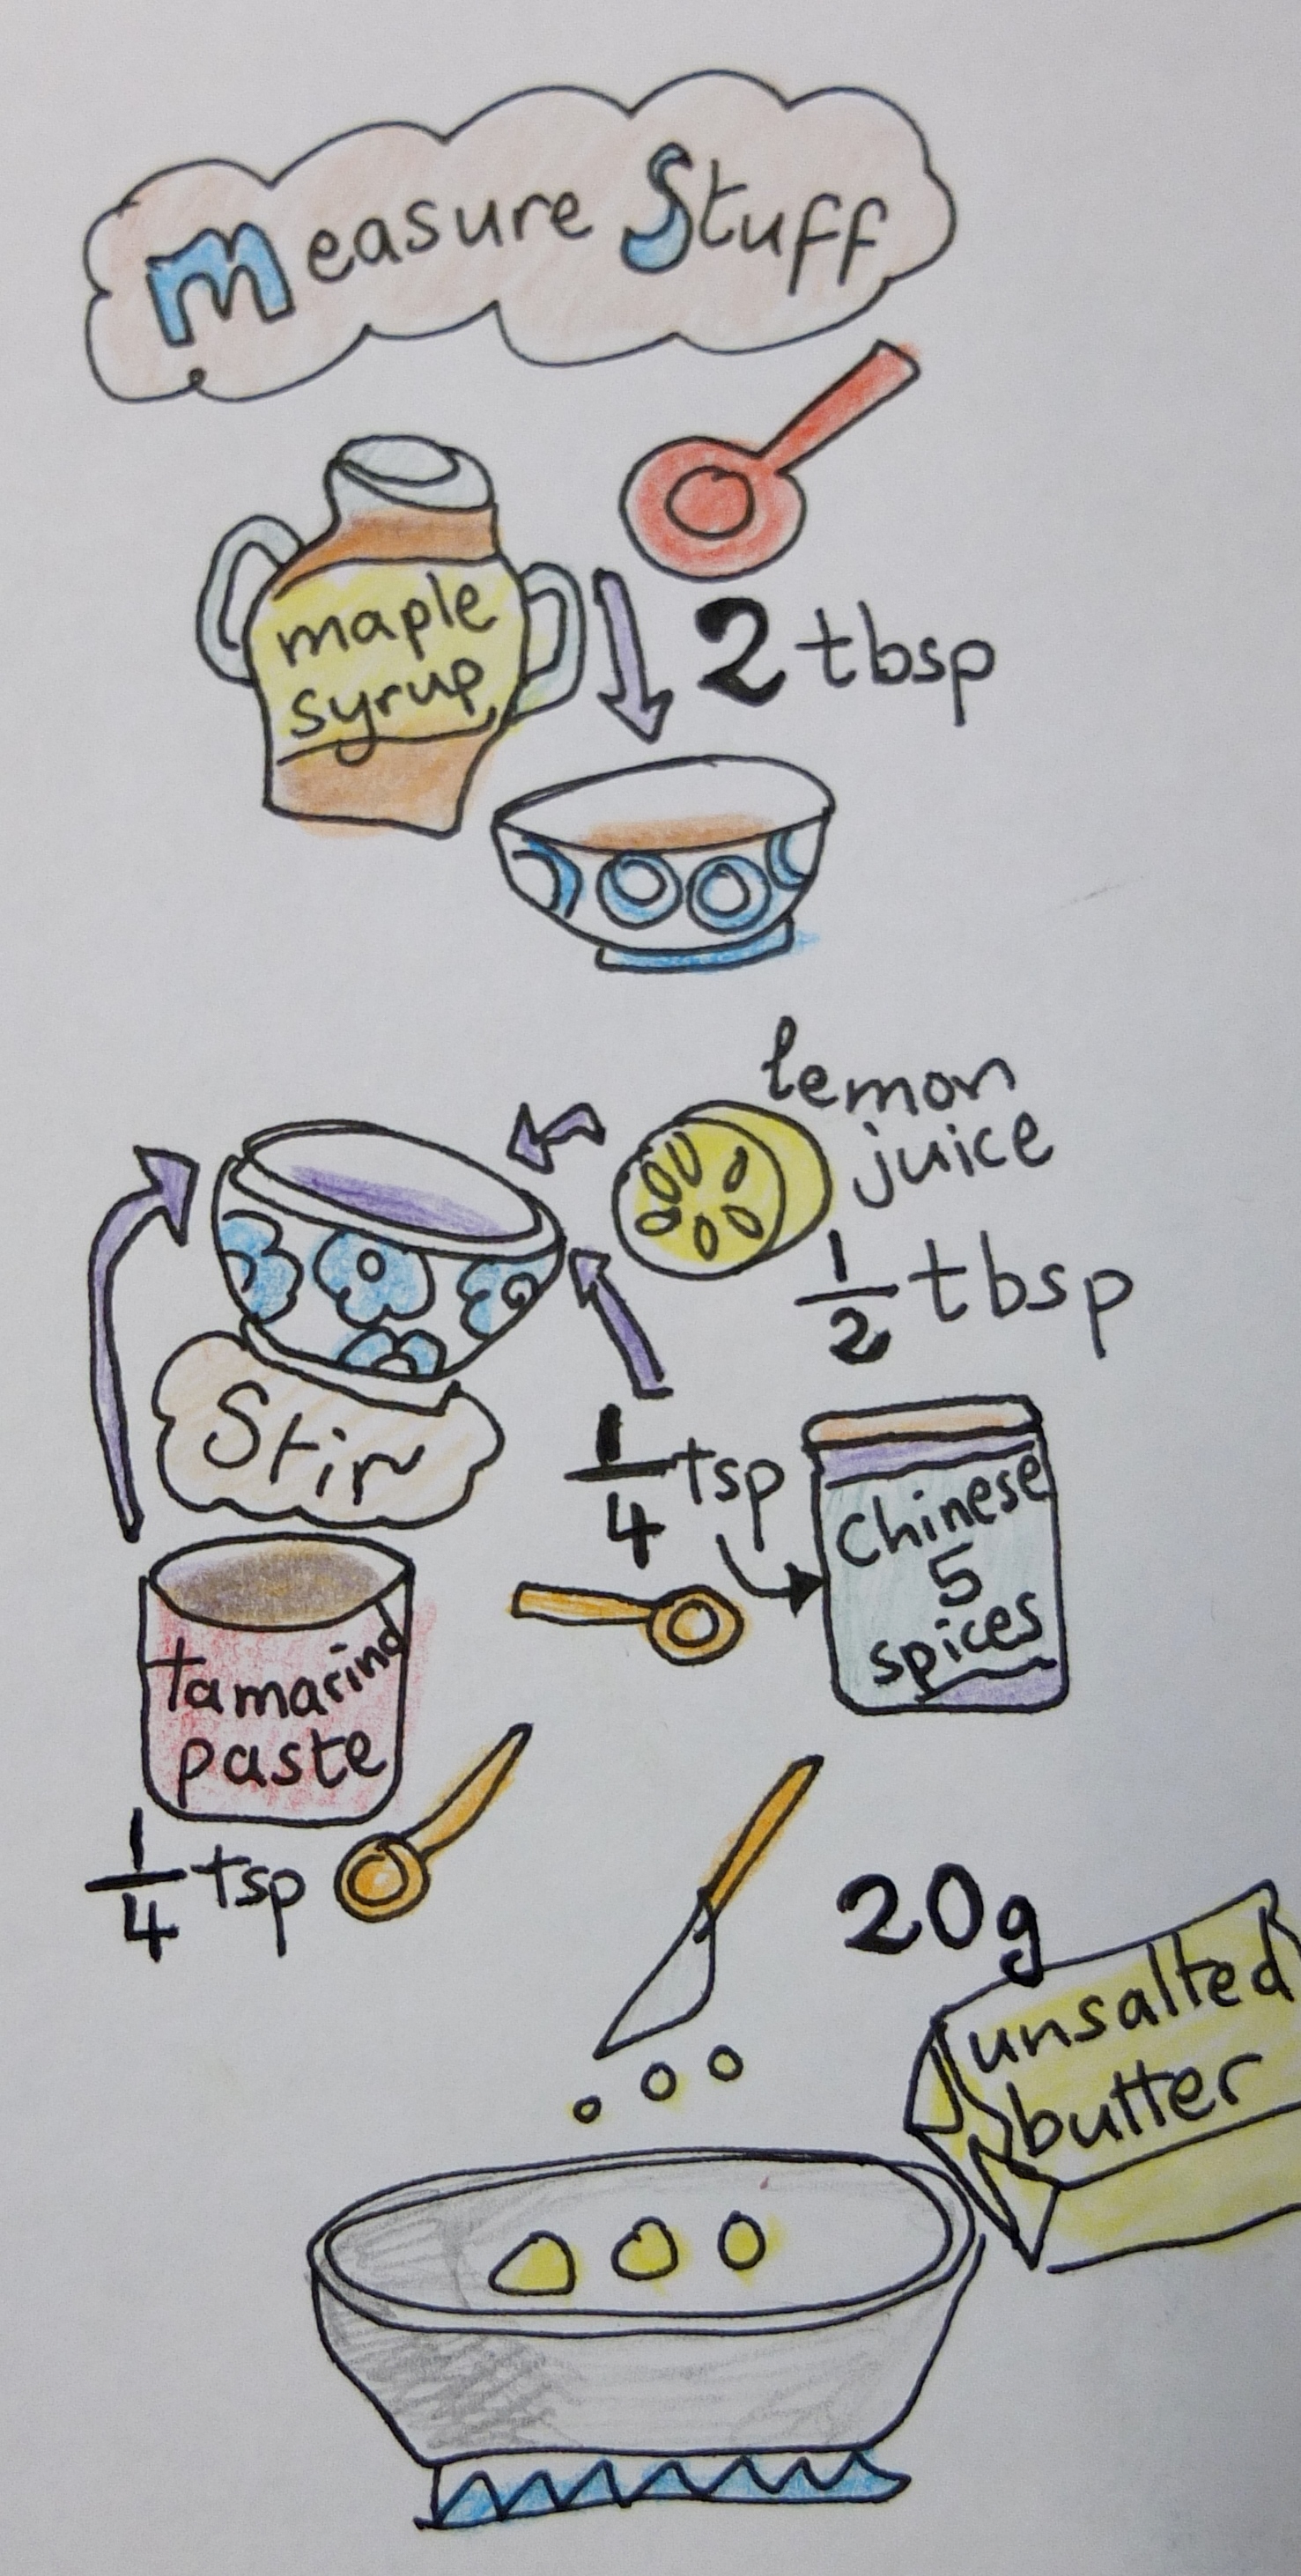 Measure Stuff
maple
syrup
2 tbsp
lemon
juice
1/2 tbsp
Stir
1/4 tsp
Chinese
5
spices
tamarind
paste
1/4 tsp
20g
unsalted
butter